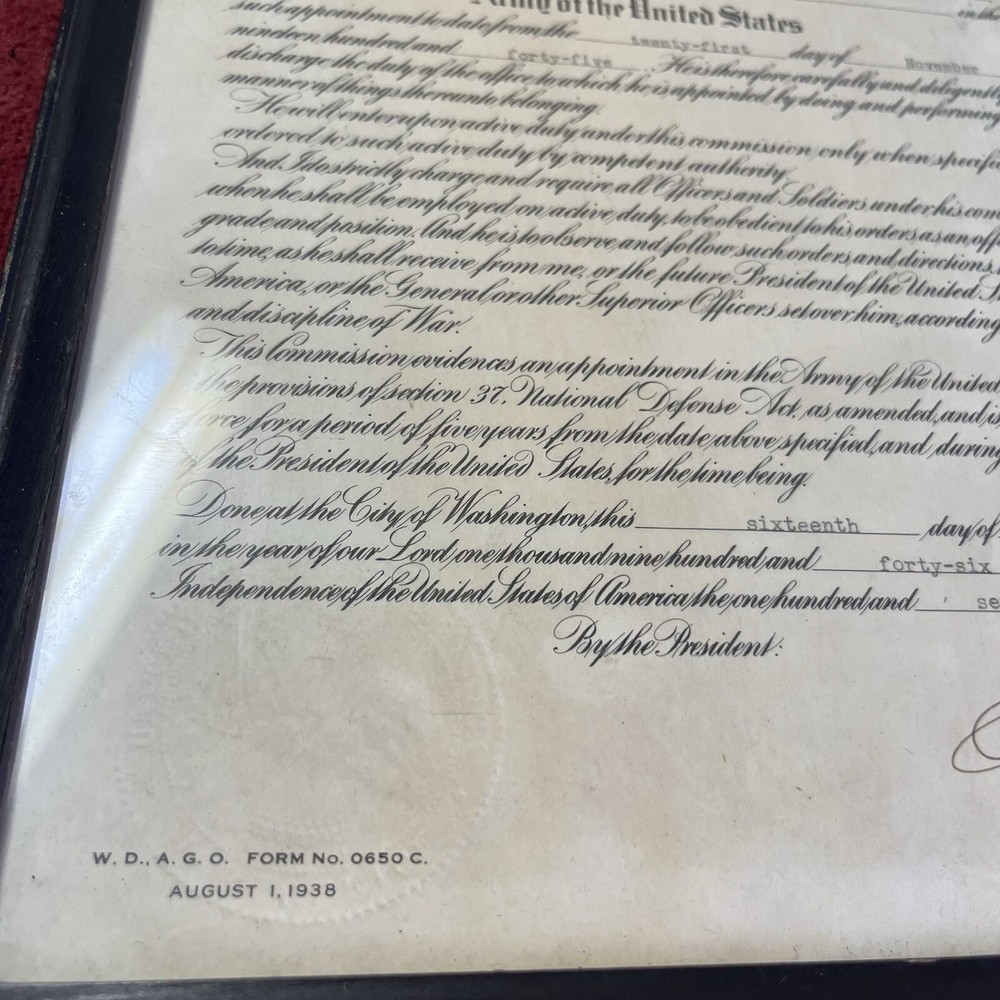 in the
Army of the United States
such appointment to date from the twenty-first day of November
nineteen hundred and forty-five. He is therefore carefully and diligently
discharge the duty of the office to which he is appointed by doing and performing
manner of things thereunto belonging.
He will enter upon active duty under this commission only when specif
ordered to such active duty by competent authority.
And I do strictly charge and require all Officers and Soldiers under his com
when he shall be employed on active duty, to be obedient to his orders as an off
grade and position. And he is to observe and follow such orders and directions,
to time, as he shall receive from me, or the future President of the United S
America, or the General or other Superior Officers set over him, according
and discipline of War.
This Commission evidences an appointment in the Army of the United
the provisions of section 37, National Defense Act, as amended, and is
force for a period of five years from the date above specified, and during
of the President of the United States, for the time being.
Done at the City of Washington, this sixteenth day of
in the year of our Lord one thousand nine hundred and forty-six
Independence of the United States of America the one hundred and se
By the President:
W. D., A. G. O. FORM No. 0650 C.
AUGUST 1, 1938